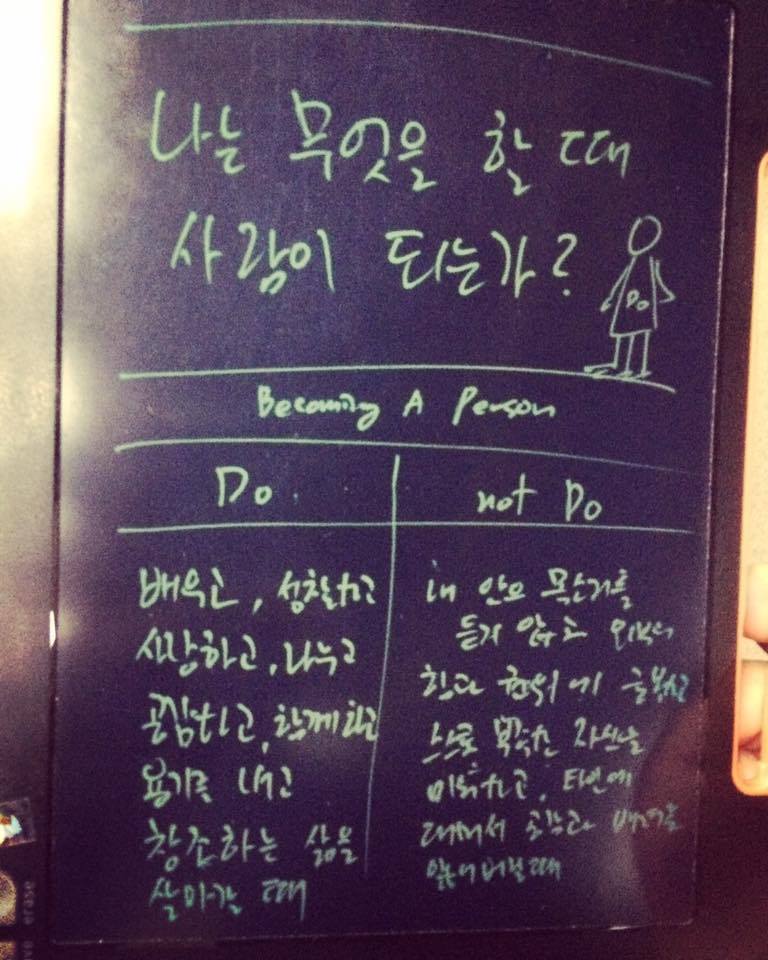 나는 무엇을 할 때
사람이 되는가?
Do
Becoming A Person
Do
not Do
배우고, 성찰하고
성장하고, 나누고
공감하고, 함께하고
용기를 내고
창조하는 삶을
살아갈 때
내 안의 목소리를
듣지 않고 외부의
힘과 권위에 굴복하고
스스로 부족한 자신을
미워하고, 타인에
대해서 공감과 배려를
잃어버릴 때
erase